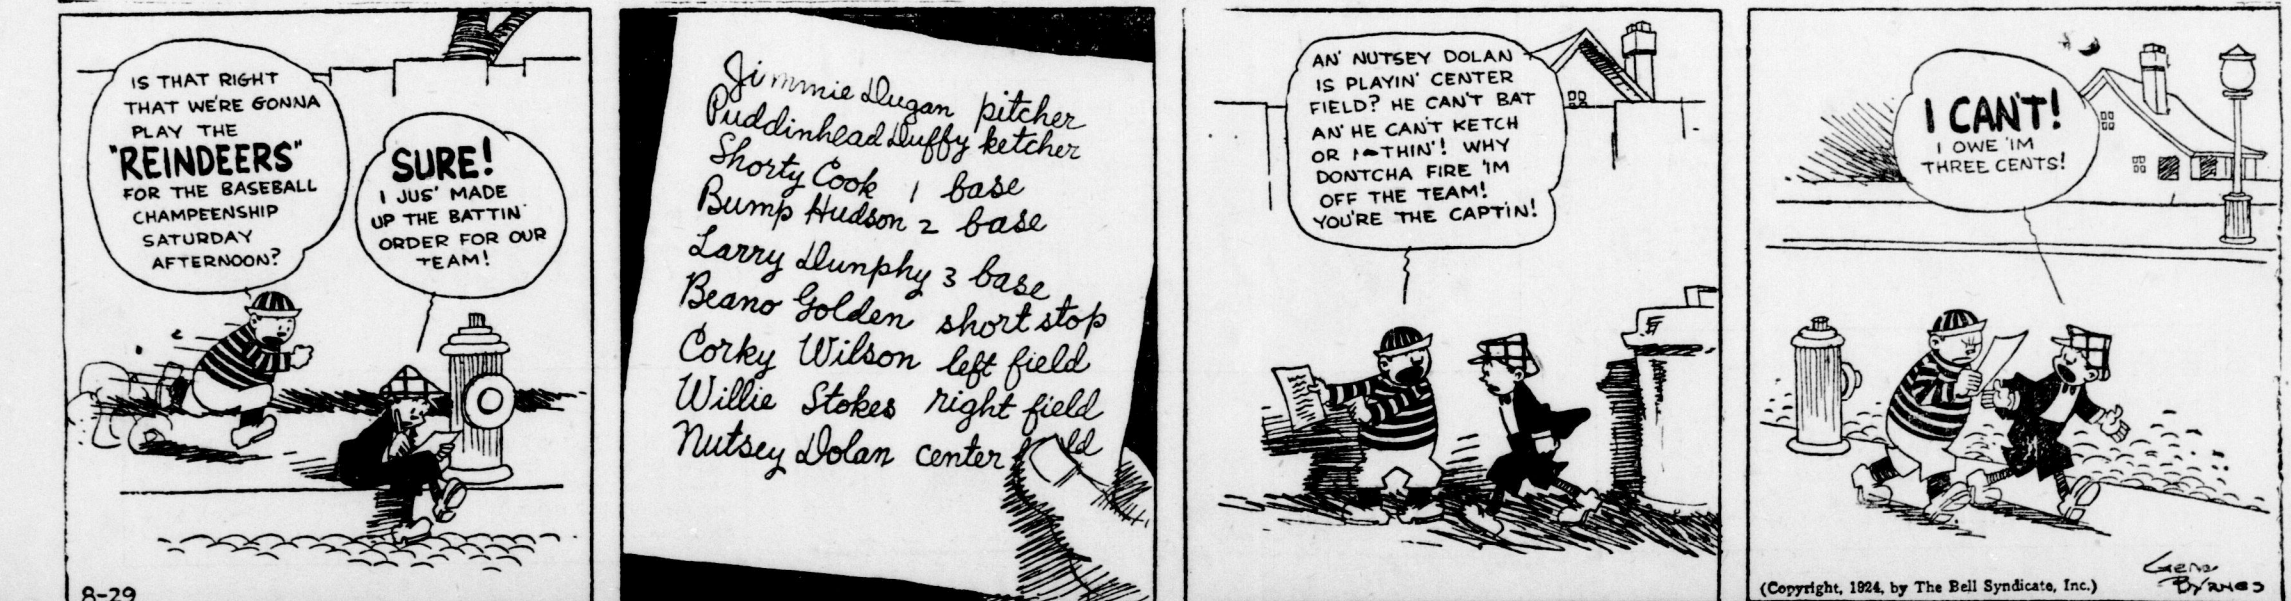 IS THAT RIGHT
THAT WE'RE GONNA
PLAY THE
"REINDEERS"
FOR THE BASEBALL
CHAMPEENSHIP
SATURDAY
AFTERNOON?
SURE!
I JUS' MADE
UP THE BATTIN'
ORDER FOR OUR
TEAM!
8-29
Jimmie Dugan pitcher
Puddinhead Duffy ketcher
Shorty Cook 1 base
Bump Hudson 2 base
Larry Dunphy 3 base
Beano Golden short stop
Corky Wilson left field
Willie Stokes right field
Nutsey Dolan center
AN' NUTSEY DOLAN
IS PLAYIN' CENTER
FIELD? HE CAN'T BAT
AN' HE CAN'T KETCH
OR NOTHIN'! WHY
DONTCHA FIRE 'IM
OFF THE TEAM!
YOU'RE THE CAPTIN!
I CAN'T!
I OWE 'IM
THREE CENTS!
Gene
Byrnes
(Copyright, 1924, by The Bell Syndicate, Inc.)